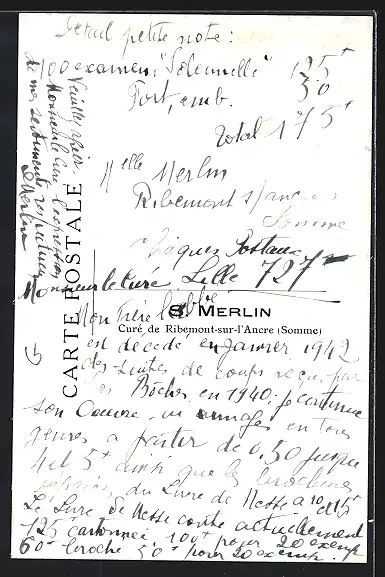 Détail petite note :
100 examens "Solennelle" 125 f
Port, emb. 50
Total 175 f
Melle Merlin
Ribemont s/ancre
Somme
Chèques Postaux
Lille 727
Monsieur le Curé,
Mon frère l'abbé
S. MERLIN
Curé de Ribemont-sur-l'Ancre (Somme)
est décédé en Janvier 1942
des suites de coups reçus par
les Bôches en 1940; je continue
son Oeuvre, en images en tous
genres à partir de 0,50 jusque
4 et 5 f ainsi que les brochures
du Livre de Messe à 10 et 15 f
Le Livre de Messe coûte actuellement
125 f cartonné, 100 f pour 20 exemp.
60 f broché 50 f pour 20 exemp.
CARTE POSTALE
Veuillez agréer,
Monsieur le Curé, l'expression
de mes sentiments respectueux
S Merlin